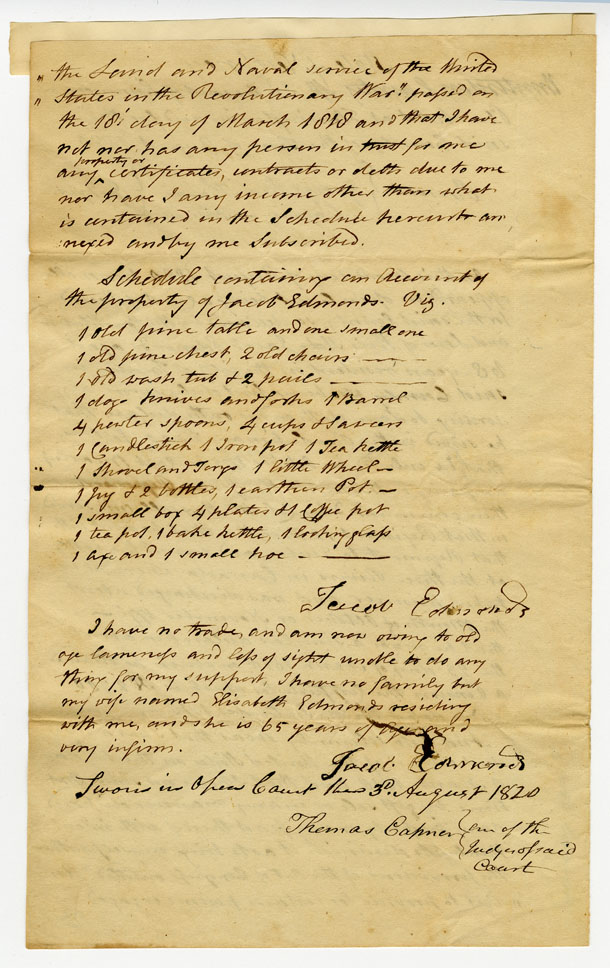 " the Land and Naval service of the United
" States in the Revolutionary War" passed on
the 18th day of March 1818 and that I have
not nor has any person in trust for me
property or
any certificates, contracts or debts due to me
nor have I any income other than what
is contained in the Schedule hereunto an
nexed and by me Subscribed.
Schedule containing an Account of
the property of Jacob Edmonds. Viz.
1 old pine table and one small one
1 old pine chest, 2 old chairs
1 old wash tub & 2 pails
1 doz. knives and forks 1 Barrel
4 pewter spoons, 4 cups & Saucers
1 Candlestick 1 Iron pot 1 Tea kettle
1 Shovel and Tongs 1 little Wheel
1 jug & 2 bottles, 1 earthen Pot
1 small box 4 plates & 1 Coffee pot
1 tea pot, 1 bake kettle, 1 looking glass
1 axe and 1 small hoe
Jacob Edmonds
I have no trade, and am now owing to old
age lameness and loss of sight unable to do any
thing for my support, I have no family but
my wife named Elisabeth Edmonds residing
with me, and she is 65 years of age and
very infirm.
Jacob Edmonds
Sworn in Open Court this 3d. August 1820
Thomas Capner one of the
Judges of said
Court